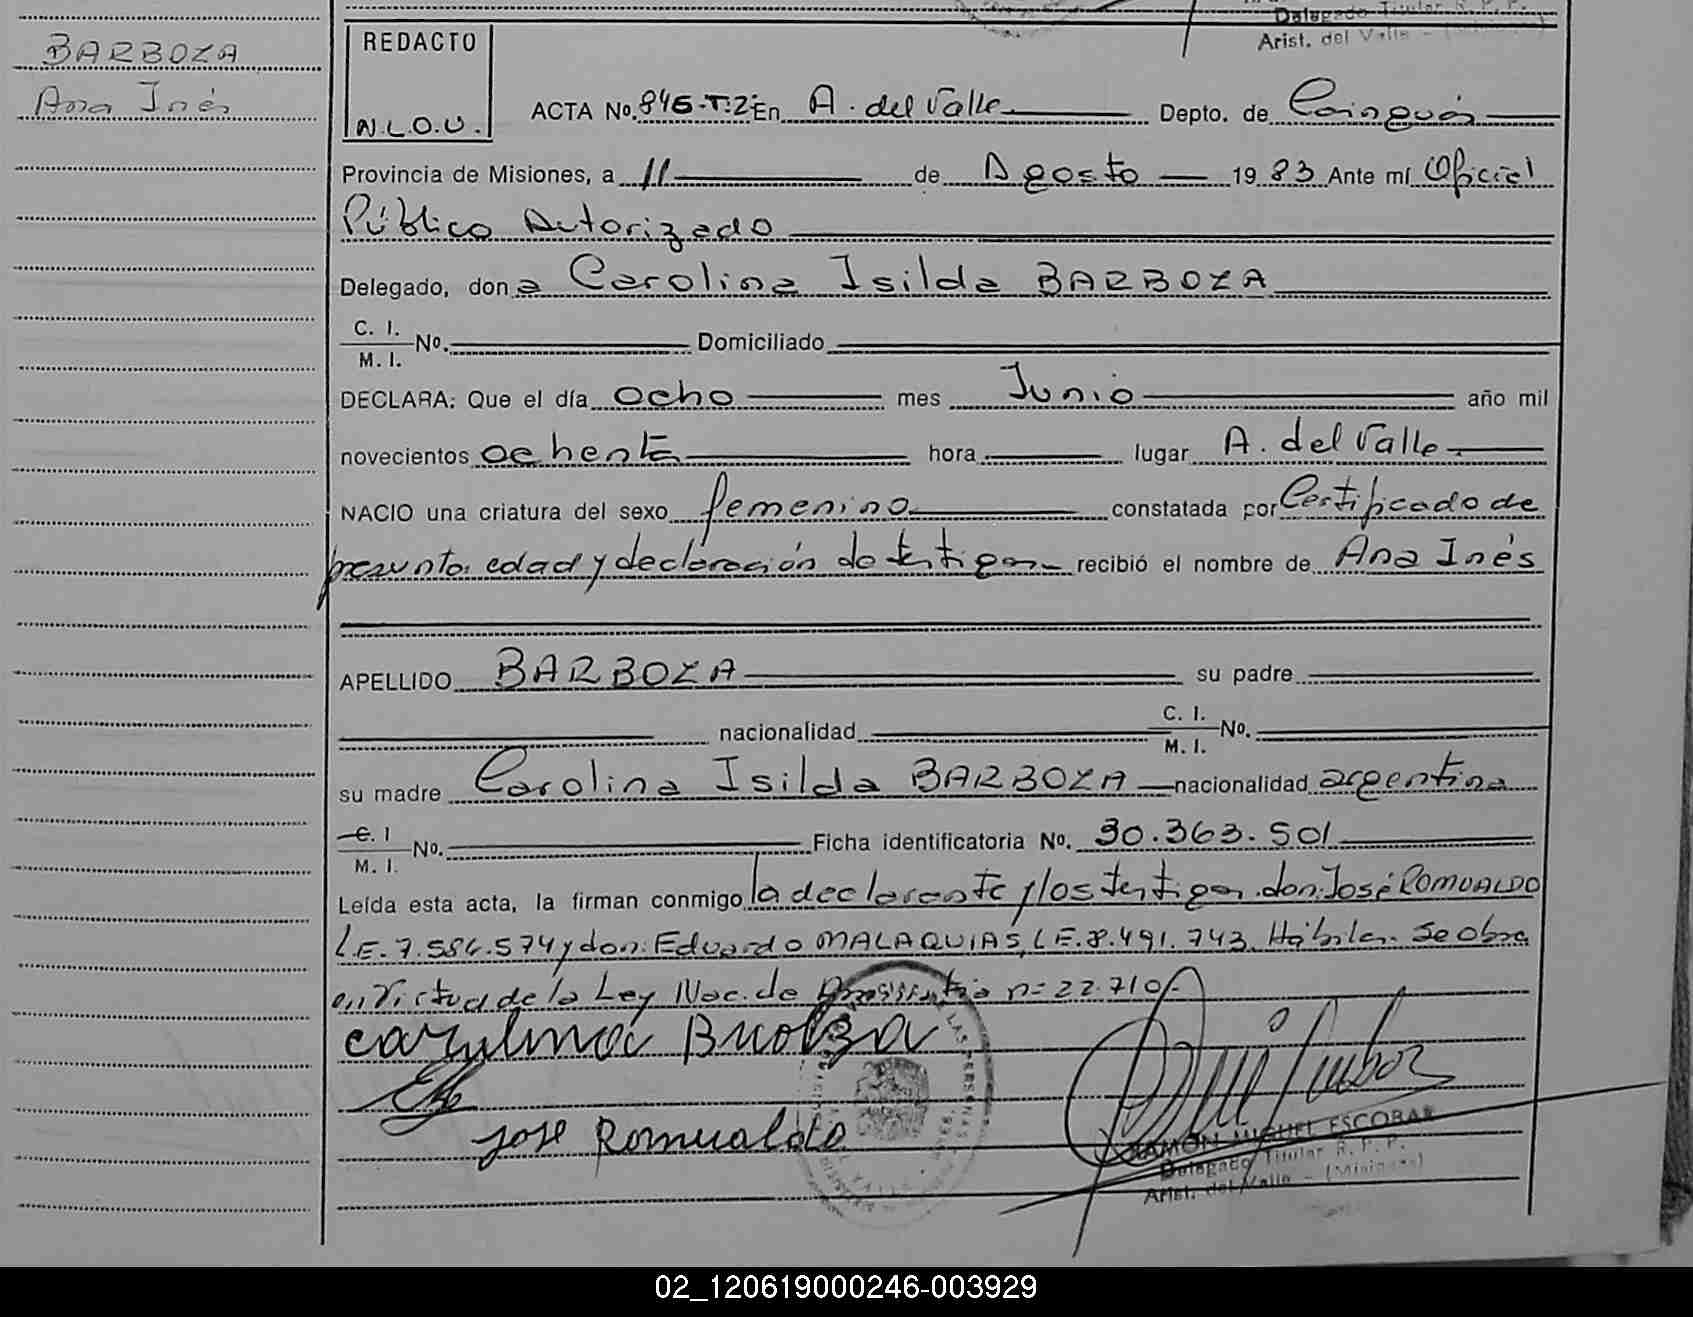 Delegado Titular R. P. P.
Arist. del Valle - (Misiones)
BARBOZA
Ana Inés
REDACTO
N.L.O.U.
ACTA No. 846-T:2º En A. del Valle Depto. de Cainguás
Provincia de Misiones, a 11 de Agosto 1983 Ante mí Oficial
Público Autorizado
Delegado, don a Carolina Isilda BARBOZA
C. I.
M. I. No. Domiciliado
DECLARA: Que el día ocho mes Junio año mil
novecientos ochenta hora lugar A. del Valle
NACIO una criatura del sexo femenino constatada por Certificado de
presunta edad y declaración de testigos recibió el nombre de Ana Inés
APELLIDO BARBOZA su padre
nacionalidad C. I.
M. I. No.
su madre Carolina Isilda BARBOZA nacionalidad argentina
C. I
M. I. No. Ficha identificatoria No. 30.363.501
Leída esta acta, la firman conmigo la declarante y los testigos don: José ROMUALDO
L.E. 7.584.574 y don: Eduardo MALAQUIAS, L.E. 8.491.743. Hábiles. Se obra
en virtud de la Ley Nac. de Amnistía nº 22.710.-
José Romualdo
RAMÓN MIGUEL ESCOBAR
Delegado Titular R. P. P.
Arist. del Valle - (Misiones)
02_120619000246-003929